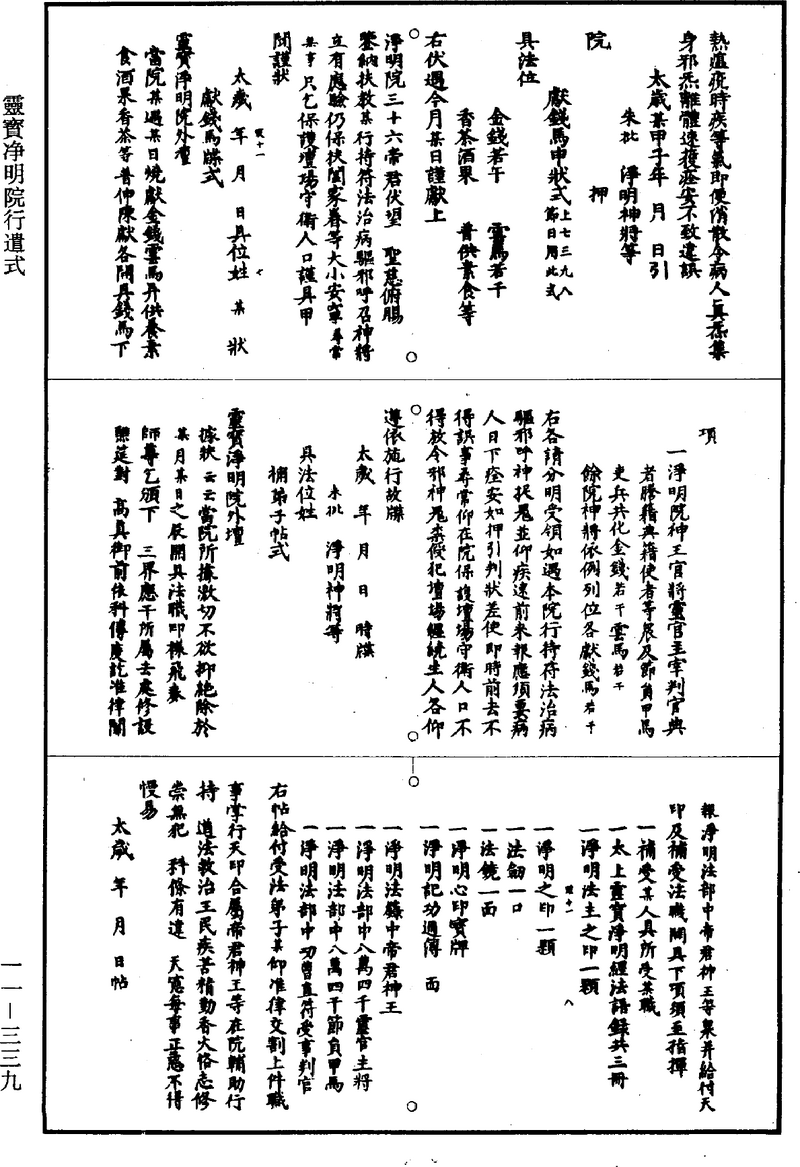 熱瘟疫時疾等氣即便消散令病人真炁藂
身邪炁離體速獲痊安不致違誤
太歲某甲子年　月　日引
朱批　淨明神將等
院　　押
獻錢馬申狀式上七三九八節日用此式
具法位
金錢若干　雲馬若干
香茶酒果　普供素食等
右伏遇今月某日謹獻上
淨明院三十六帝君伏望　聖慈俯賜
鑒納扶救某行持符法治病驅邪呼召神將
立有應驗仍保扶闔家眷等大小安寧尋常
無事只乞保護壇場守衛人口謹具甲
聞謹狀
太歲　年　月　日具位姓　某　狀
獻錢馬牒式
靈寶淨明院外壇
當院某遇某日燒獻金錢雲馬并供養素
食酒果香茶等普伸陳獻各開具錢馬下
項
一淨明院神王官將靈官主宰判官典
者謄籍典籍使者等展及節員甲馬
吏兵共化金錢若干雲馬若干
餘院神將依例列位各獻錢馬若干
右各請分明受領如遇本院行持符法治病
驅邪呼神捉鬼並仰疾速前來報應須要病
人日下痊安如押引判狀差使即時前去不
得誤事尋常仰在院保護壇場守衛人口不
得放令邪神鬼祟侵犯壇場經諕生人各仰
遵依施行故牒
太歲　年　月　日　時牒
朱批　淨明神將等
具法位姓
補弟子帖式
靈寶淨明院外壇
據狀云云當院所據激切不欲抑絕除於
某月某日之辰開具法職印𧝓飛奏
師尊乞頒下　三界應干所屬去處修設
醮筵對　高真御前依科傳度訖准律關
報淨明法部中帝君神王等衆并給付天
印及補受法職開具下項須至指揮
一補受某人具所受某職
一太上靈寶淨明經法語錄共三冊
一淨明法主之印一顆
一淨明之印一顆
一法劒一口
一法鏡一面
一淨明心印寶牌
一淨明記功過簿　面
一淨明法籙中帝君神王
一淨明法部中八萬四千靈官主將
一淨明法部中八萬四千節員甲馬
一淨明法部中功曹直符受事判官
右帖給付受法弟子某仰准律交割上件職
事掌行天印合屬帝君神王等在院輔助行
持　道法救治王民疾苦精勤香火恪志修
崇無犯　科條有違　天憲每事正慈不得
慢易
太歲　年　月　日帖
靈寶淨明院行遣式
一一—三三九